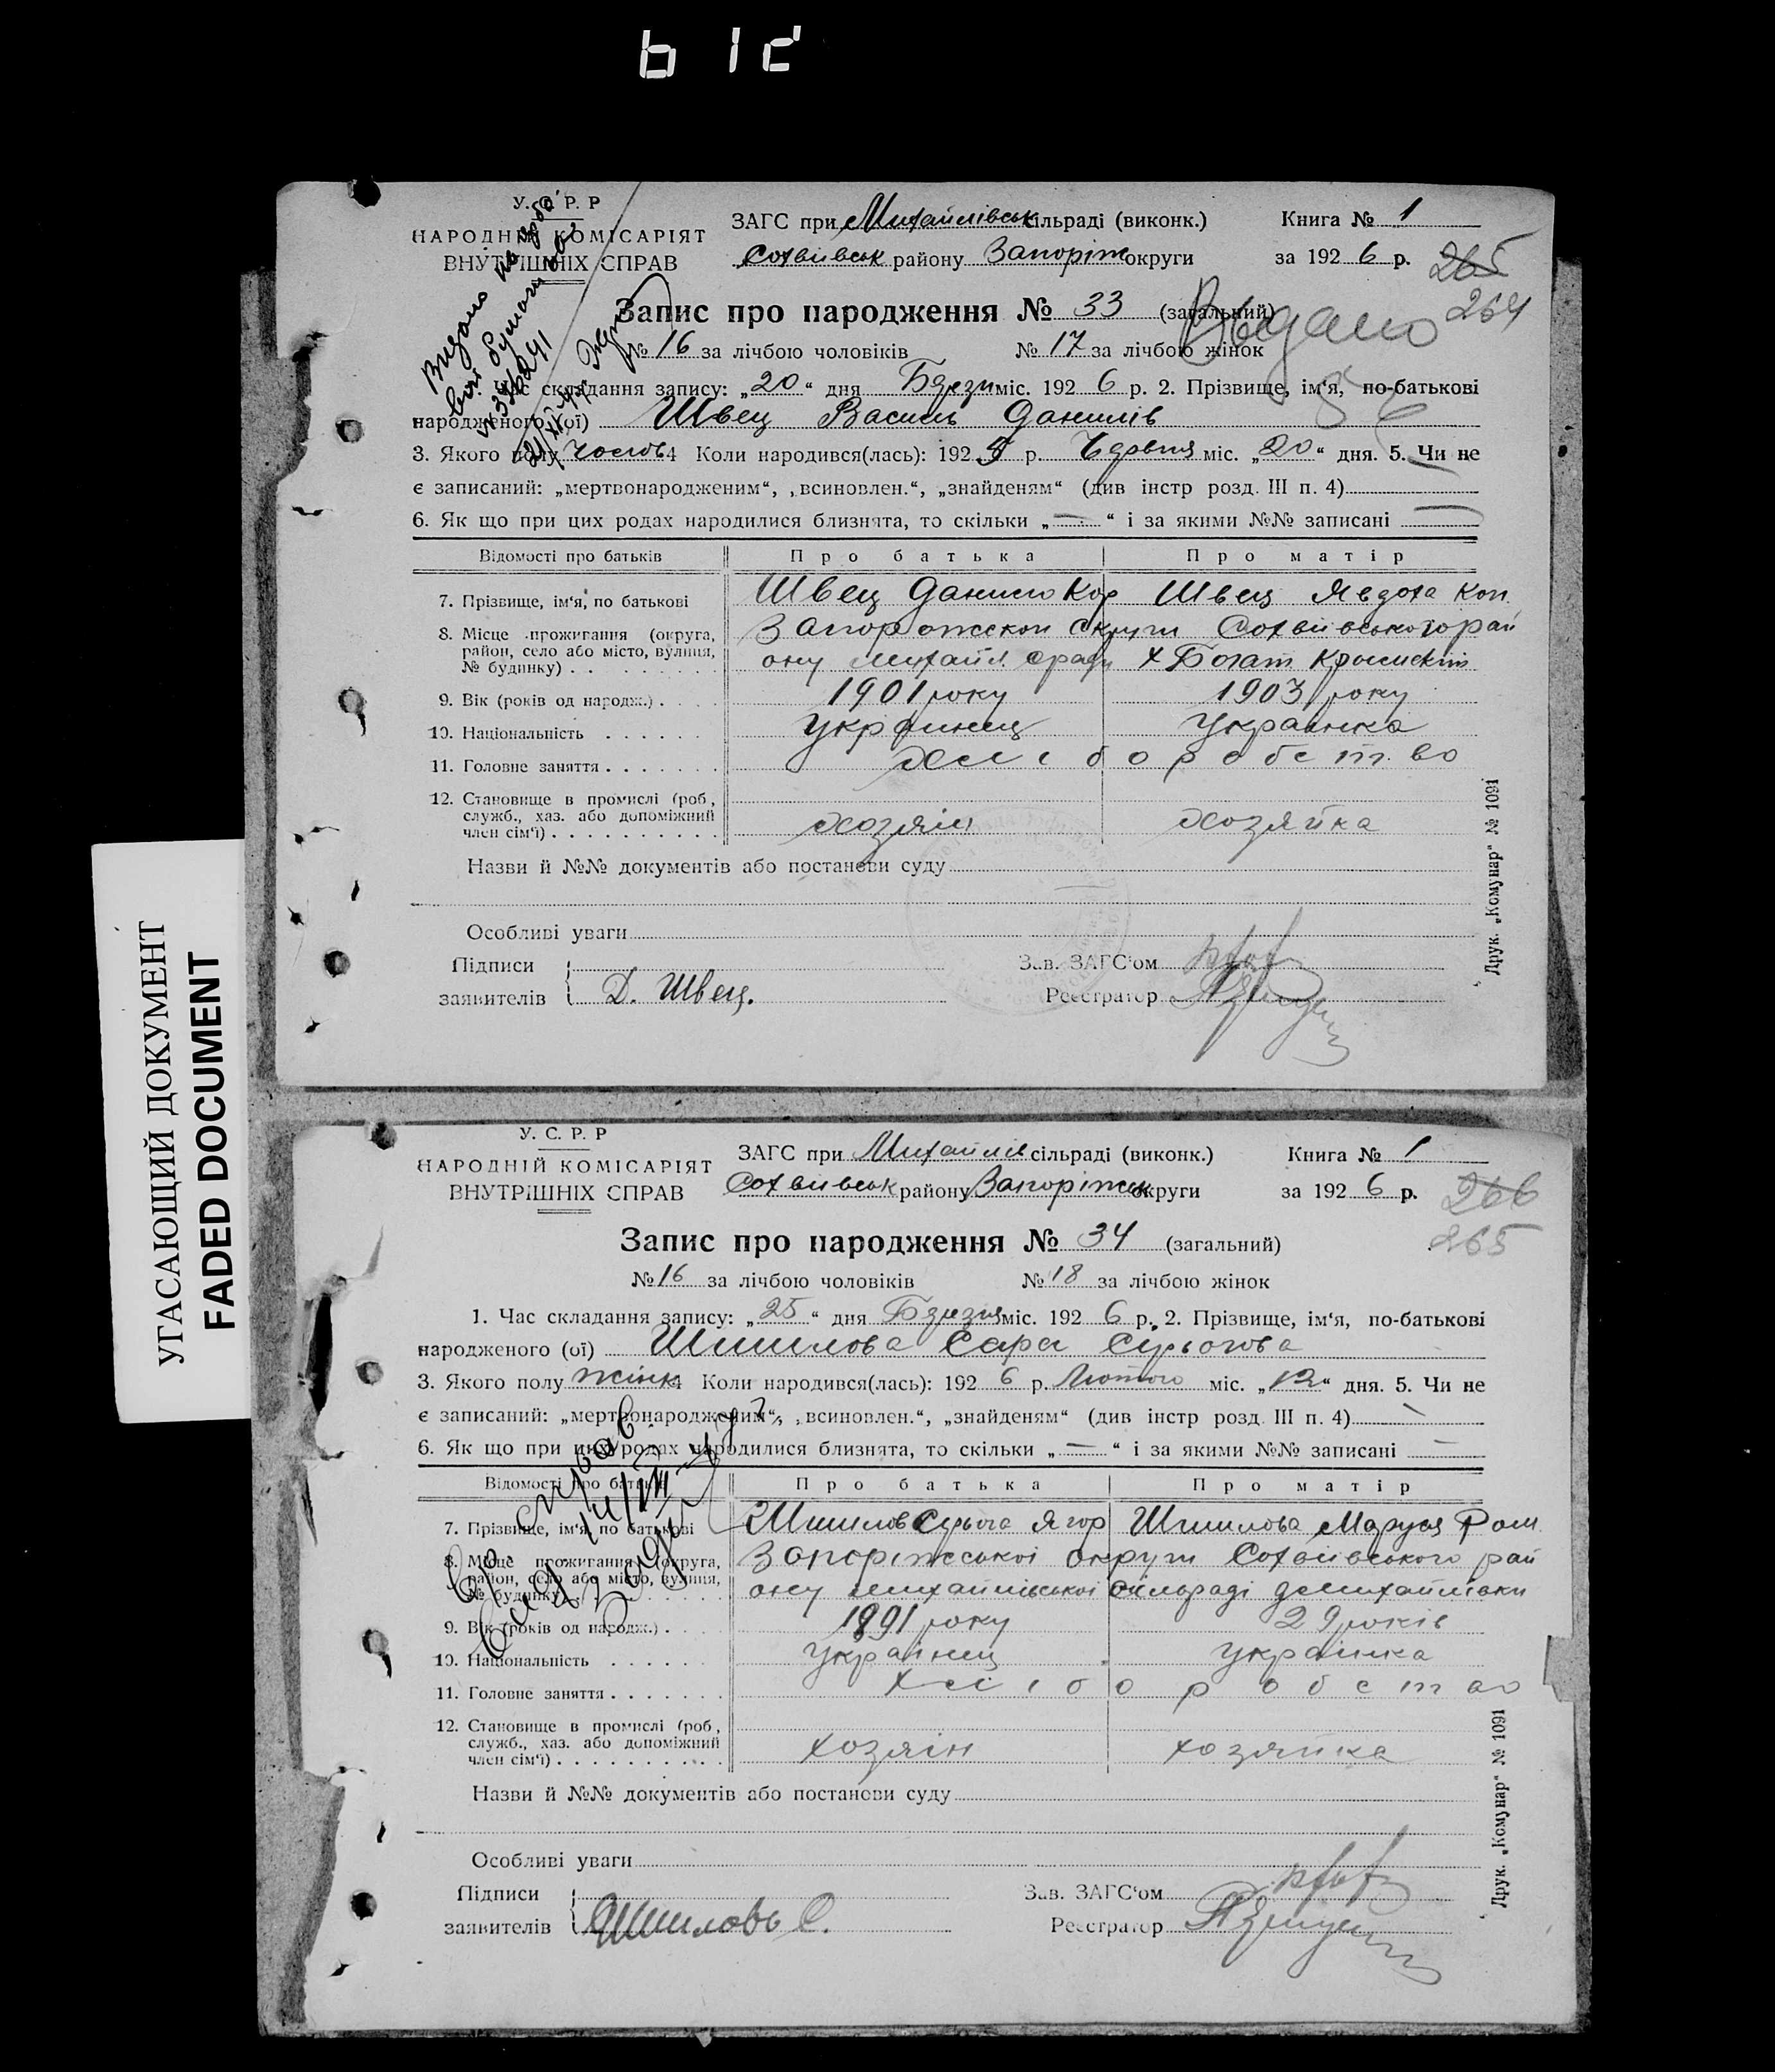 У. С. Р. Р
НАРОДНІЙ КОМІСАРІЯТ
ВНУТРІШНІХ СПРАВ
ЗАГС при Михайлівськ сільраді (виконк.)
Софіівськ району Запоріж округи
Книга № 1
за 192 6 р.
265
264
Запис про народження № 33 (загальний)
Выдано
№ 16 за лічбою чоловіків № 17 за лічбою жінок
Час складання запису: „20“ дня Березн міс. 192 6 р. 2. Прізвище, ім‘я, по-батькові
народженого (ої) Швец Василь Данилів
3. Якого полу чолов 4 Коли народився(лась): 192 5 р. Червня міс. „20“ дня. 5. Чи не
є записаний: „мертвонародженим“, „всиновлен.“, „знайденям“ (див інстр розд. III п. 4)
6. Як що при цих родах народилися близнята, то скільки „—“ і за якими №№ записані —
Відомості про батьків Про батька Про матір
7. Прізвище, ім‘я, по батькові Швец Данило Кор Швец Явдоха Кон.
8. Місце проживання (округа,
район, село або місто, вулиця,
№ будинку)
Запорожскои округи Софиівського рай
ону Михайл. сради х Богат
9. Вік (років од народж.) 1901 року 1903 року
10. Національність Українец Украінка
11. Головне заняття Хліборобство
12. Становище в промислі (роб.,
служб., хаз. або допоміжний
член сім‘ї)
хозяін хозяйка
Назви й №№ документів або постанови суду
Особливі уваги
Підписи
заявителів
Д. Швец.
Зав. ЗАГС‘ом
Реєстратор
Друк. „Комунар“ № 1091
УГАСАЮЩИЙ ДОКУМЕНТ
FADED DOCUMENT
У. С. Р. Р
НАРОДНІЙ КОМІСАРІЯТ
ВНУТРІШНІХ СПРАВ
ЗАГС при Михайлів сільраді (виконк.)
Софіівськ району Запоріжськ округи
Книга № 1
за 192 6 р.
266
265
Запис про народження № 34 (загальний)
№ 16 за лічбою чоловіків № 18 за лічбою жінок
1. Час складання запису: „25“ дня Березня міс. 192 6 р. 2. Прізвище, ім‘я, по-батькові
народженого (ої) Шишлова Сара Сірьогова
3. Якого полу жінк 4 Коли народився(лась): 192 6 р. Лютого міс. „12“ дня. 5. Чи не
є записаний: „мертвонародженим“, „всиновлен.“, „знайденям“ (див інстр розд. III п. 4)
6. Як що при цих родах народилися близнята, то скільки „—“ і за якими №№ записані —
Відомості про батьків Про батька Про матір
7. Прізвище, ім‘я, по батькові Шишлов Сурьога Ягор Шишлова Маруся Ром.
8. Місце проживання (округа,
район, село або місто, вулиця,
№ будинку)
Запоріжськоі округи Софиівського рай
ону Михайлівськоі сільраді д Михайлівки
9. Вік (років од народж.) 1891 року 29 років
10. Національність Українец Украінка
11. Головне заняття Хліборобство
12. Становище в промислі (роб.,
служб., хаз. або допоміжний
член сім‘ї)
хозяін хозяйка
Назви й №№ документів або постанови суду
Особливі уваги
Підписи
заявителів
Шишловь С.
Зав. ЗАГС‘ом
Реєстратор
Друк. „Комунар“ № 1091